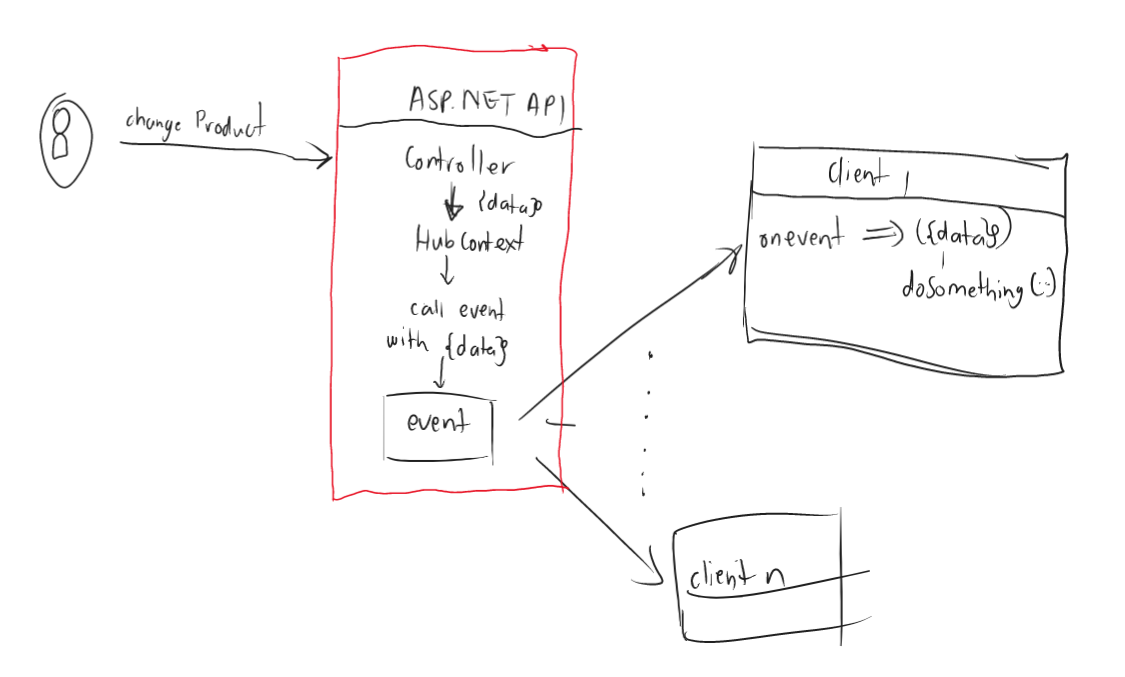 change Product
ASP.NET API
Controller
{data}
HubContext
call event
with {data}
event
Client 1
onevent => ({data})
doSomething(..)
client n